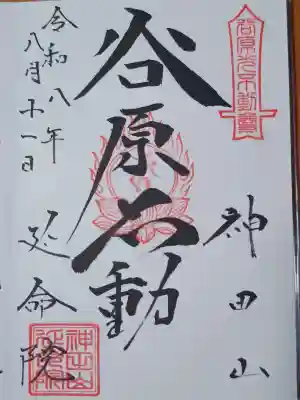 神田山
谷原不動
令和八年
八月十一日
延命院
神田山
延命院